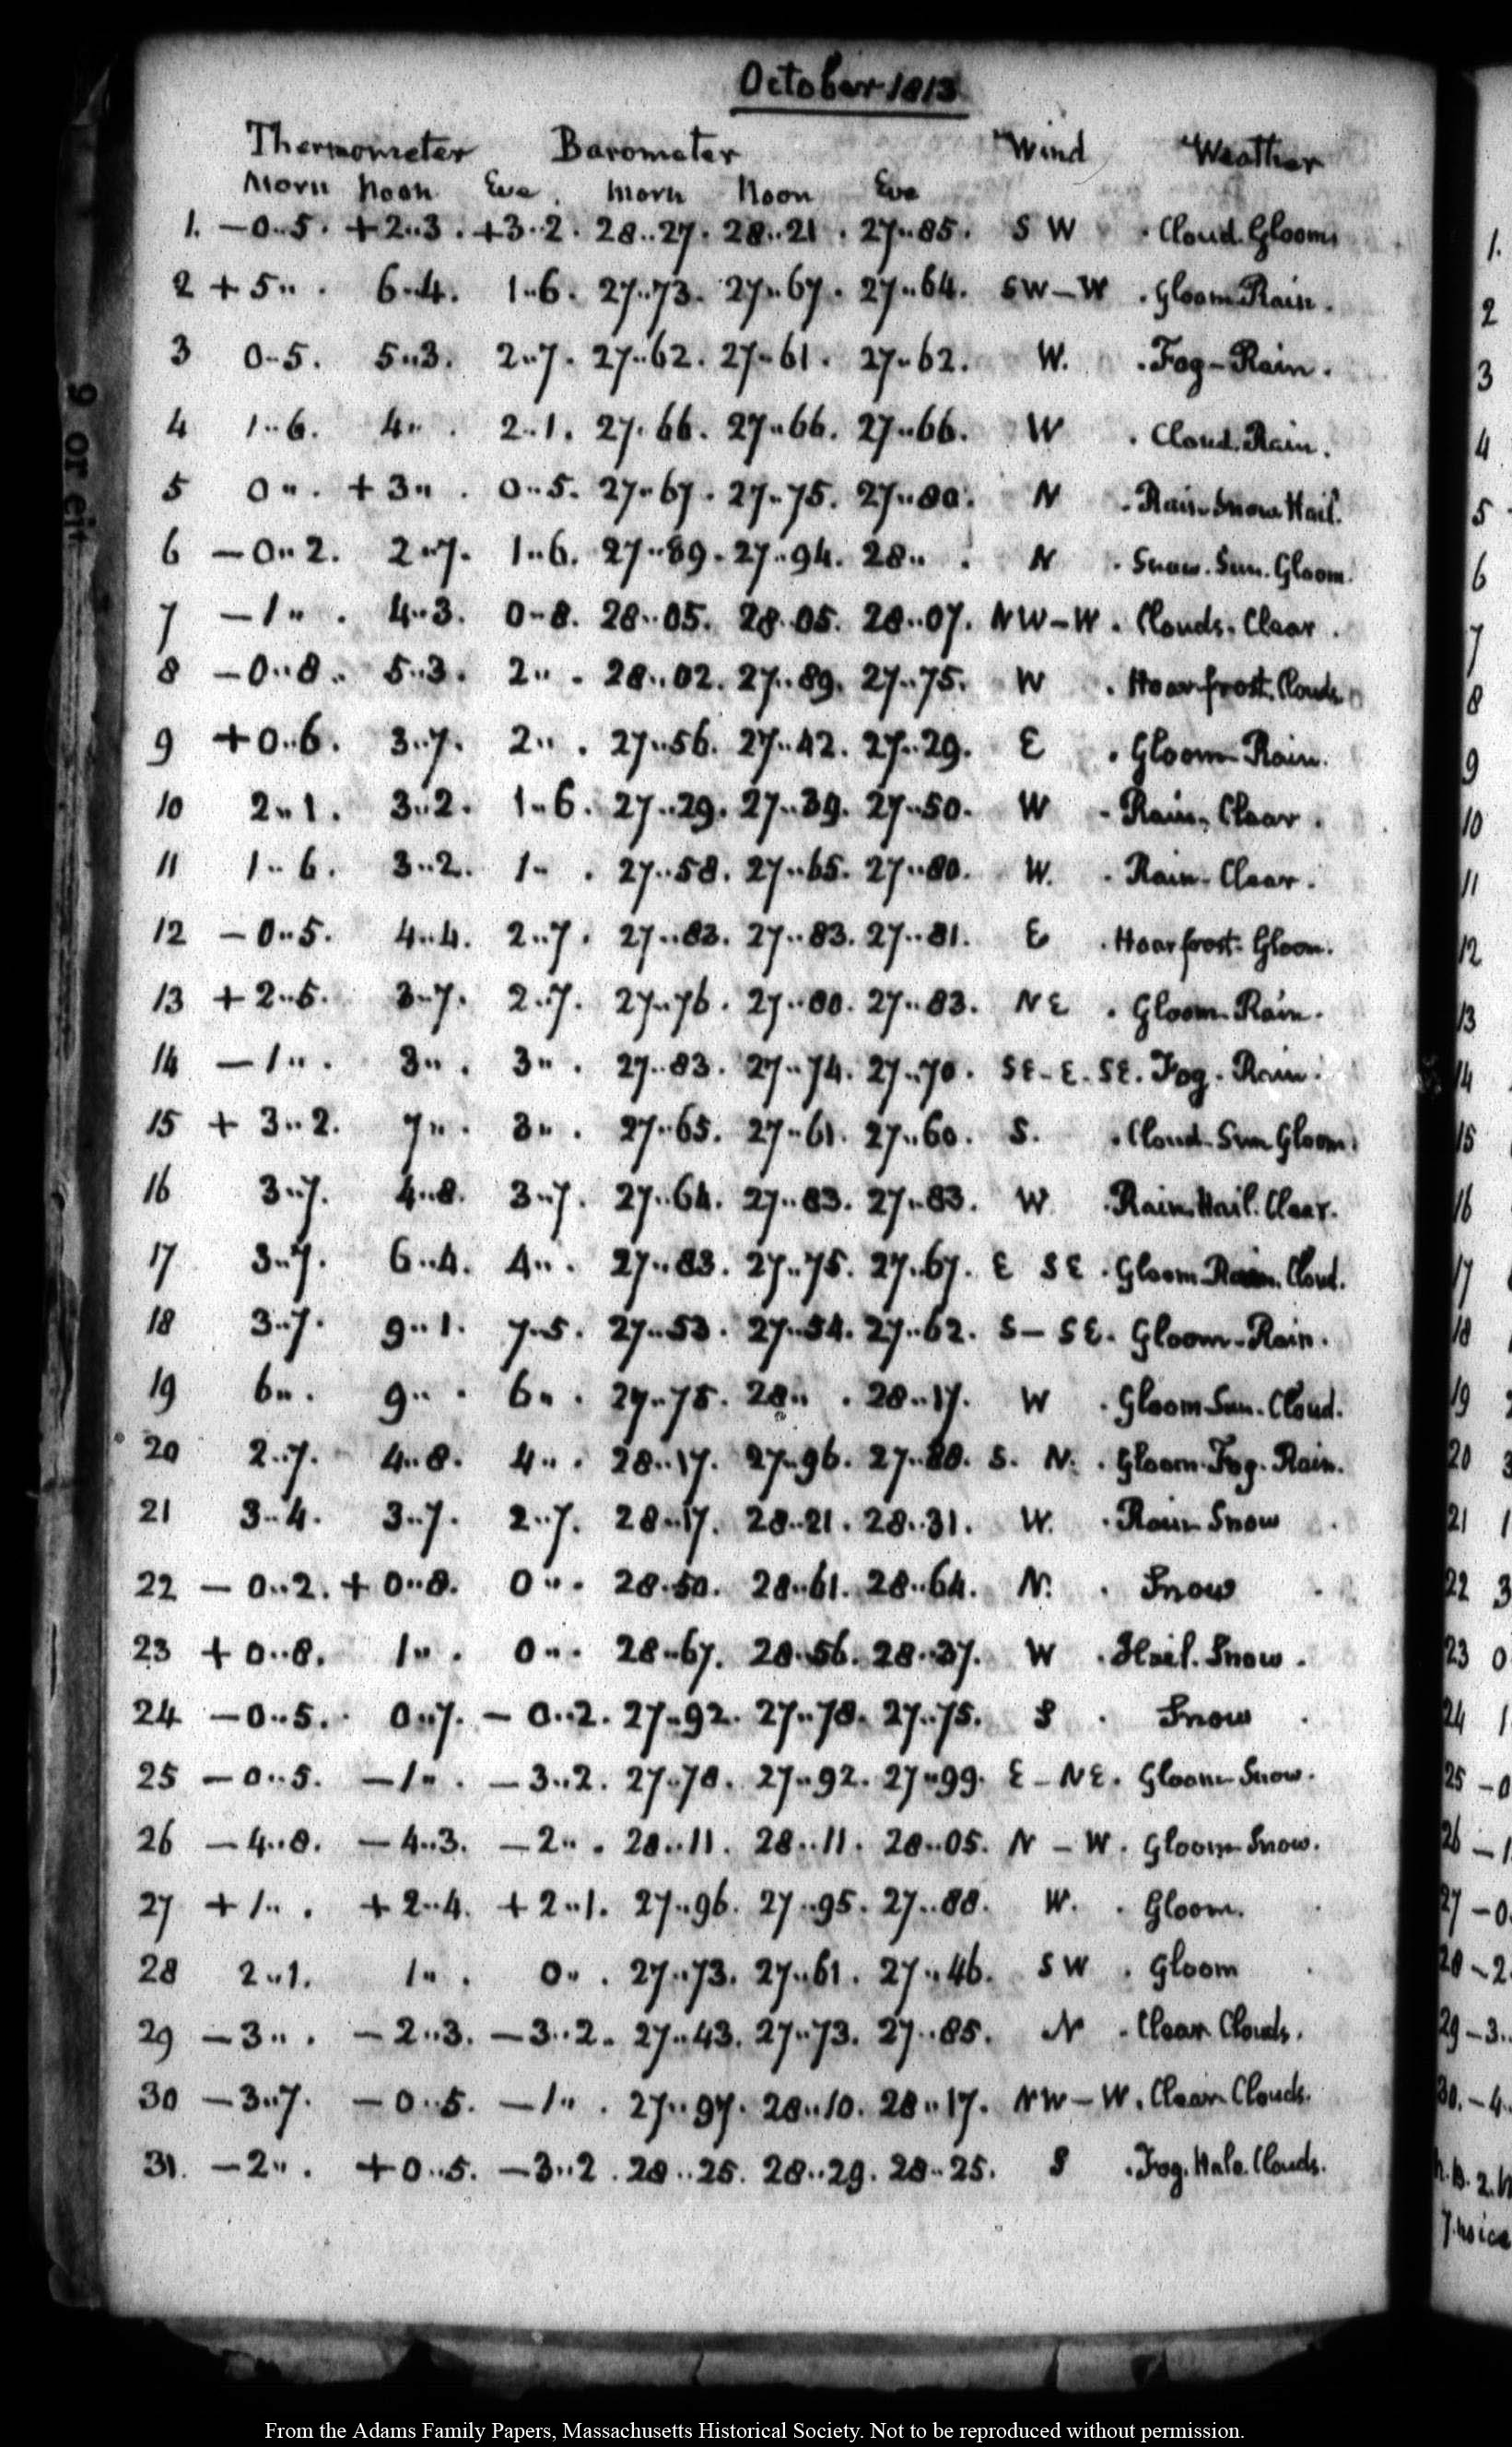 October 1813.
Thermometer Barometer Wind Weather
Morn Noon Eve. Morn Noon Eve
1. -0..5. +2..3. +3..2. 28..27. 28..21. 27..85. S W . Cloud. Gloom
2 +5.. . 6..4. 1..6. 27..73. 27..67. 27..64. SW-W . Gloom Rain.
3 0..5. 5..3. 2..7. 27..62. 27..61. 27..62. W. . Fog-Rain.
4 1..6. 4.. . 2..1. 27..66. 27..66. 27..66. W . Cloud. Rain.
5 0.. . +3.. . 0..5. 27..67. 27..75. 27..80. N . Rain Snow Hail.
6 -0..2. 2..7. 1..6. 27..89. 27..94. 28.. . N . Snow. Sun. Gloom.
7 -1.. . 4..3. 0..8. 28..05. 28..05. 28..07. NW-W. Clouds. Clear.
8 -0..8. 5..3. 2.. . 28..02. 27..89. 27..75. W . Hoar frost. Clouds
9 +0..6. 3..7. 2.. . 27..56. 27..42. 27..29. E . Gloom-Rain.
10 2..1. 3..2. 1..6. 27..29. 27..39. 27..50. W - Rain, Clear.
11 1..6. 3..2. 1.. . 27..58. 27..65. 27..80. W. . Rain-Clear.
12 -0..5. 4..4. 2..7. 27..83. 27..83. 27..81. E . Hoar frost- Gloom.
13 +2..5. 3..7. 2..7. 27..76. 27..80. 27..83. N E . Gloom-Rain.
14 -1.. . 3.. . 3.. . 27..83. 27..74. 27..70. SE-E. SE. Fog-Rain.
15 +3..2. 7.. . 3.. . 27..65. 27..61. 27..60. S. . Cloud-Sun Gloom.
16 3..7. 4..8. 3..7. 27..64. 27..83. 27..83. W . Rain. Hail. Clear.
17 3..7. 6..4. 4.. . 27..83. 27..75. 27..67. E SE . Gloom Rain. Cloud.
18 3..7. 9..1. 7..5. 27..53. 27..54. 27..62. S-SE. Gloom-Rain.
19 6.. . 9.. . 6.. . 27..75. 28.. . 28..17. W . Gloom Sun. Cloud.
20 2..7. 4..8. 4.. . 28..17. 27..96. 27..88. S. N. . Gloom. Fog. Rain.
21 3..4. 3..7. 2..7. 28..17. 28..21. 28..31. W. . Rain Snow .
22 -0..2. +0..8. 0.. . 28..50. 28..61. 28..64. N. . Snow .
23 +0..8. 1.. . 0.. . 28..67. 28..56. 28..37. W . Hail. Snow.
24 -0..5. 0..7. -0..2. 27..92. 27..78. 27..75. S . Snow .
25 -0..5. -1.. . -3..2. 27..78. 27..92. 27..99. E-NE. Gloom-Snow.
26 -4..8. -4..3. -2.. . 28..11. 28..11. 28..05. N-W. Gloom-Snow.
27 +1.. . +2..4. +2..1. 27..96. 27..95. 27..88. W. . Gloom.
28 2..1. 1.. . 0.. . 27..73. 27..61. 27..46. S W . Gloom .
29 -3.. . -2..3. -3..2. 27..43. 27..73. 27..85. N . Clear Clouds.
30 -3..7. -0..5. -1.. . 27..97. 28..10. 28..17. NW-W. Clear Clouds.
31. -2.. . +0..5. -3..2. 28..25. 28..29. 28..25. S . Fog. Halo. Clouds.
From the Adams Family Papers, Massachusetts Historical Society. Not to be reproduced without permission.